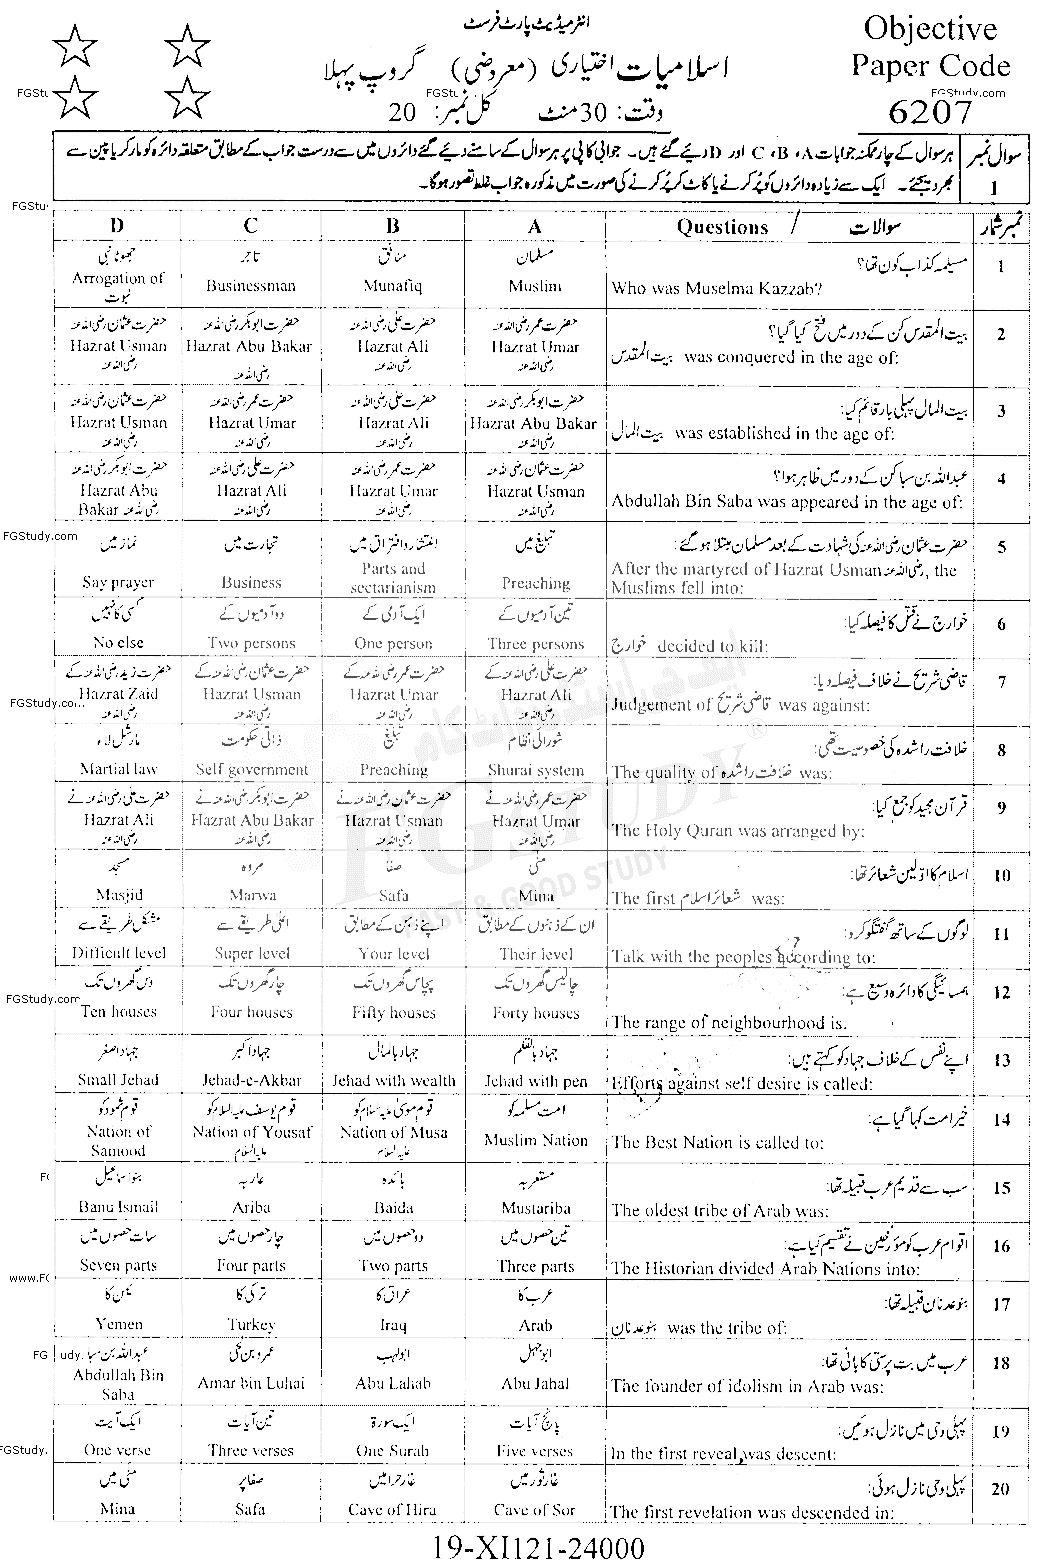 انٹرمیڈیٹ پارٹ فرسٹ
اسلامیات اختیاری (معروضی) گروپ پہلا
وقت: 30 منٹ کل نمبر: 20
Objective
Paper Code
6207
FGStudy.com
سوال نمبر 1
ہر سوال کے چار ممکنہ جوابات A، B، C اور D دیئے گئے ہیں۔ جوابی کاپی پر ہر سوال کے سامنے دیئے گئے دائروں میں سے درست جواب کے مطابق متعلقہ دائرہ کو مارکر یا پین سے
بھر دیجئے۔ ایک سے زیادہ دائروں کو پُر کرنے یا کاٹ کر پُر کرنے کی صورت میں مذکورہ جواب غلط تصور ہوگا۔
نمبر شمار سوالات / Questions A B C D
1 مسیلمہ کذاب کون تھا؟ مسلمان منافق تاجر جھوٹا نبی
Who was Muselma Kazzab? Muslim Munafiq Businessman Arrogation of نبوت
2 بیت المقدس کن کے دور میں فتح کیا گیا؟ حضرت عمر رضی اللہ عنہ حضرت علی رضی اللہ عنہ حضرت ابوبکر رضی اللہ عنہ حضرت عثمان رضی اللہ عنہ
بیت المقدس was conquered in the age of: Hazrat Umar رضی اللہ عنہ Hazrat Ali رضی اللہ عنہ Hazrat Abu Bakar رضی اللہ عنہ Hazrat Usman رضی اللہ عنہ
3 بیت المال پہلی بار قائم کیا: حضرت ابوبکر رضی اللہ عنہ حضرت علی رضی اللہ عنہ حضرت عمر رضی اللہ عنہ حضرت عثمان رضی اللہ عنہ
بیت المال was established in the age of: Hazrat Abu Bakar رضی اللہ عنہ Hazrat Ali رضی اللہ عنہ Hazrat Umar رضی اللہ عنہ Hazrat Usman رضی اللہ عنہ
4 عبداللہ بن سبا کن کے دور میں ظاہر ہوا؟ حضرت عثمان رضی اللہ عنہ حضرت عمر رضی اللہ عنہ حضرت علی رضی اللہ عنہ حضرت ابوبکر رضی اللہ عنہ
Abdullah Bin Saba was appeared in the age of: Hazrat Usman رضی اللہ عنہ Hazrat Umar رضی اللہ عنہ Hazrat Ali رضی اللہ عنہ Hazrat Abu Bakar رضی اللہ عنہ
5 حضرت عثمان رضی اللہ عنہ کی شہادت کے بعد مسلمان مبتلا ہو گئے: تبلیغ میں انتشار و افتراق میں تجارت میں نماز میں
After the martyred of Hazrat Usman رضی اللہ عنہ, the Muslims fell into: Preaching Parts and sectarianism Business Say prayer
6 خوارج نے قتل کا فیصلہ کیا: تین آدمیوں کے ایک آدمی کے دو آدمیوں کے کسی کا نہیں
خوارج decided to kill: Three persons One person Two persons No else
7 قاضی شریح نے خلاف فیصلہ دیا: حضرت علی رضی اللہ عنہ کے حضرت عمر رضی اللہ عنہ کے حضرت عثمان رضی اللہ عنہ کے حضرت زید رضی اللہ عنہ کے
Judgement of قاضی شریح was against: Hazrat Ali رضی اللہ عنہ Hazrat Umar رضی اللہ عنہ Hazrat Usman رضی اللہ عنہ Hazrat Zaid رضی اللہ عنہ
8 خلافت راشدہ کی خصوصیت تھی: شورائی نظام تبلیغ ذاتی حکومت مارشل لاء
The quality of خلافت راشدہ was: Shurai system Preaching Self government Martial law
9 قرآن مجید کو جمع کیا: حضرت عمر رضی اللہ عنہ نے حضرت عثمان رضی اللہ عنہ نے حضرت ابوبکر رضی اللہ عنہ نے حضرت علی رضی اللہ عنہ نے
The Holy Quran was arranged by: Hazrat Umar رضی اللہ عنہ Hazrat Usman رضی اللہ عنہ Hazrat Abu Bakar رضی اللہ عنہ Hazrat Ali رضی اللہ عنہ
10 اسلام کا اوّلین شعائر تھا: منیٰ صفا مروہ مسجد
The first شعائر اسلام was: Mina Safa Marwa Masjid
11 لوگوں کے ساتھ گفتگو کرو: ان کے ذہنوں کے مطابق اپنے ذہن کے مطابق اعلیٰ طریقے سے مشکل طریقے سے
Talk with the peoples according to: Their level Your level Super level Difficult level
12 ہمسائیگی کا دائرہ وسیع ہے: چالیس گھروں تک پچاس گھروں تک چار گھروں تک دس گھروں تک
The range of neighbourhood is. Forty houses Fifty houses Four houses Ten houses
13 اپنے نفس کے خلاف جہاد کو کہتے ہیں: جہاد بالقلم جہاد بالمال جہاد اکبر جہاد اصغر
Efforts against self desire is called: Jehad with pen Jehad with wealth Jehad-e-Akbar Small Jehad
14 خیر امت کہا گیا ہے: امت مسلمہ کو قوم موسیٰ علیہ السلام کو قوم یوسف علیہ السلام کو قوم ثمود کو
The Best Nation is called to: Muslim Nation Nation of Musa علیہ السلام Nation of Yousaf علیہ السلام Nation of Samood
15 سب سے قدیم عرب قبیلہ تھا: مستعربہ بائدہ عاربہ بنو اسماعیل
The oldest tribe of Arab was: Mustariba Baida Ariba Banu Ismail
16 اقوام عرب کو مؤرخین نے تقسیم کیا ہے: تین حصوں میں دو حصوں میں چار حصوں میں سات حصوں میں
The Historian divided Arab Nations into: Three parts Two parts Four parts Seven parts
17 بنو عدنان قبیلہ تھا: عرب کا عراق کا ترکی کا یمن کا
بنو عدنان was the tribe of: Arab Iraq Turkey Yemen
18 عرب میں بت پرستی کا بانی تھا: ابوجہل ابولہب عمرو بن لحی عبداللہ بن سبا
The founder of idolism in Arab was: Abu Jahal Abu Lahab Amar bin Luhai Abdullah Bin Saba
19 پہلی وحی میں نازل ہوئیں: پانچ آیات ایک سورۃ تین آیات ایک آیت
In the first reveal, was descent: Five verses One Surah Three verses One verse
20 پہلی وحی نازل ہوئی: غار ثور میں غار حرا میں صفا پر منیٰ میں
The first revelation was descended in: Cave of Sor Cave of Hira Safa Mina
19-XI121-24000
FGSTUDY
FAST & GOOD STUDY